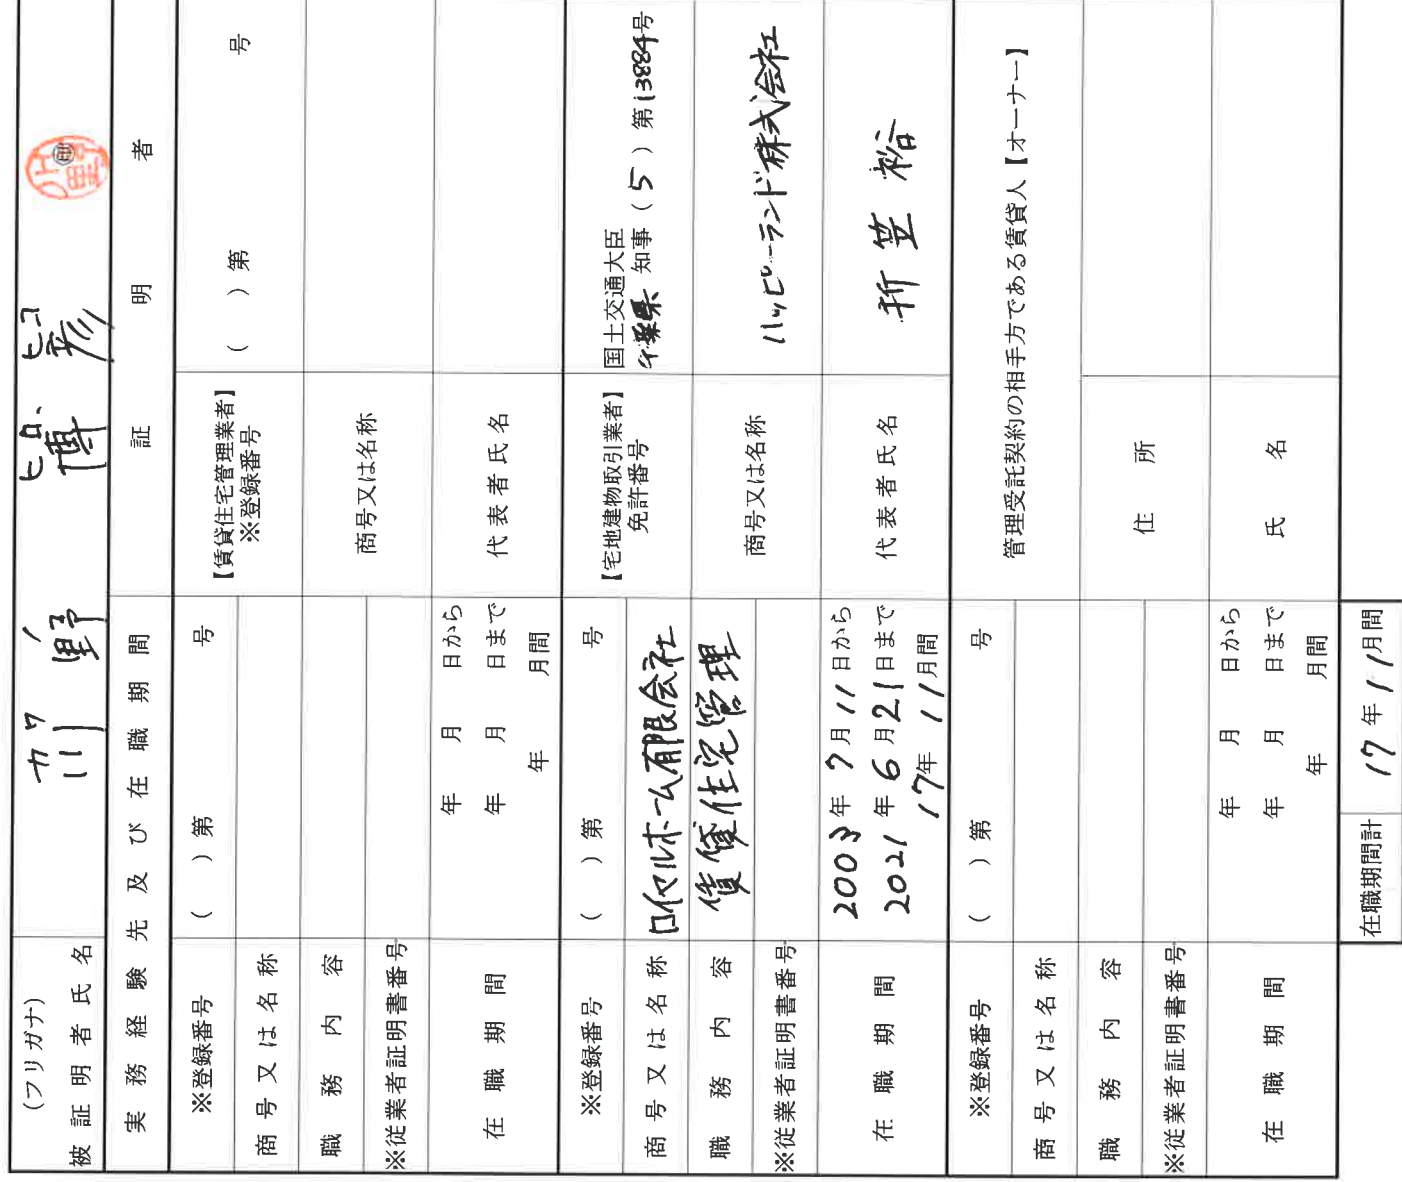 (フリガナ) カワ ノ ヒロ ヒコ
被証明者氏名 川野 博彦 ㊞
実務経験先及び在職期間 証明者
※登録番号 ( )第 号 【賃貸住宅管理業者】 ※登録番号 ( )第 号
商号又は名称 商号又は名称
職務内容
※従業者証明書番号
在職期間 年 月 日から 代表者氏名
年 月 日まで
年 月間
※登録番号 ( )第 号 【宅地建物取引業者】 免許番号 国土交通大臣
千葉県 知事 (5)第13884号
商号又は名称 ロイヤルホーム有限会社 商号又は名称 ハッピーランド株式会社
職務内容 賃貸住宅管理
※従業者証明書番号
在職期間 2003年7月11日から 代表者氏名 折笠 裕
2021年6月21日まで
17年11月間
※登録番号 ( )第 号 管理受託契約の相手方である賃貸人【オーナー】
商号又は名称
職務内容 住所
※従業者証明書番号
在職期間 年 月 日から 氏名
年 月 日まで
年 月間
在職期間計 17年11月間